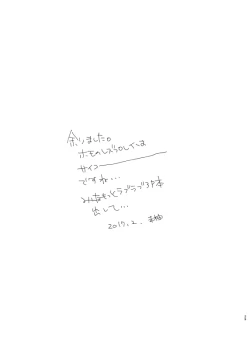 余りました。
ホモのレズ
サイコー
ですね…
みんなもっとラブラブ3P本
出して…
2017.2.
1